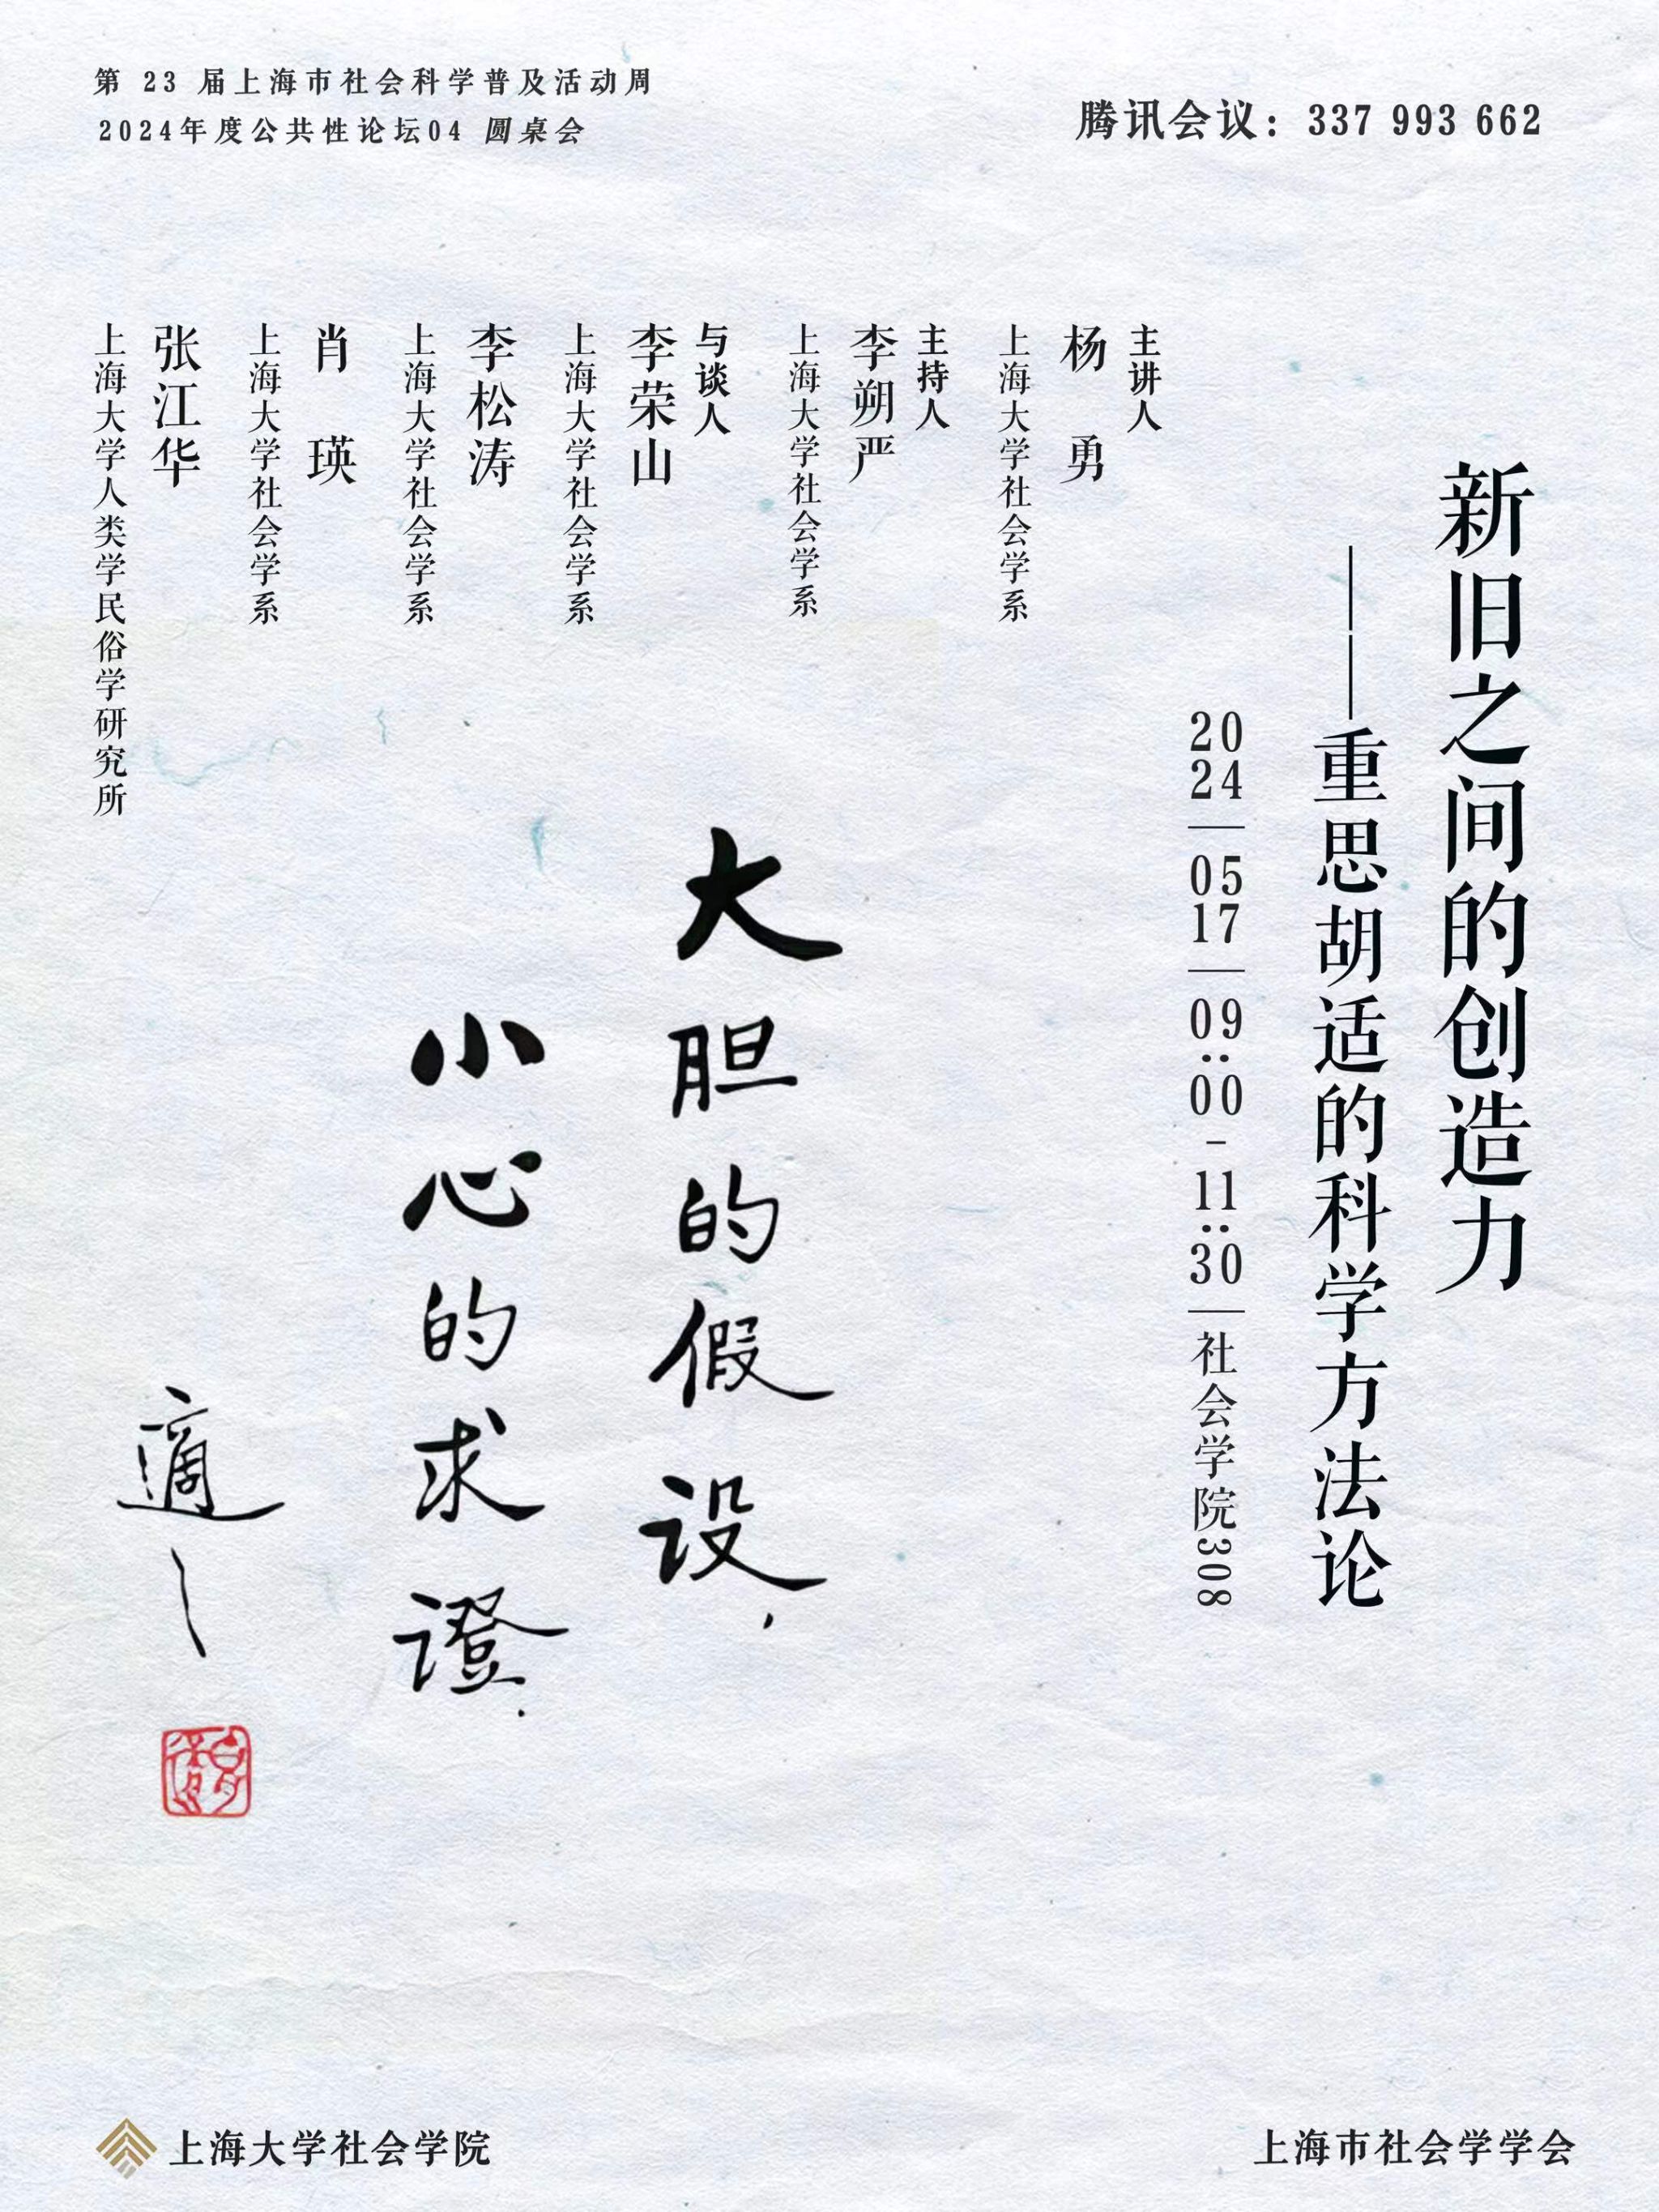 第 23 届上海市社会科学普及活动周
2024年度公共性论坛04 圆桌会
腾讯会议：337 993 662
新旧之间的创造力
——重思胡适的科学方法论
2024|05 17|09:00-11:30|社会学院308
主讲人
杨 勇
上海大学社会学系
主持人
李朔严
上海大学社会学系
与谈人
李荣山
上海大学社会学系
李松涛
上海大学社会学系
肖 瑛
上海大学社会学系
张江华
上海大学人类学民俗学研究所
大胆的假设，
小心的求證.
適之
上海大学社会学院
上海市社会学学会